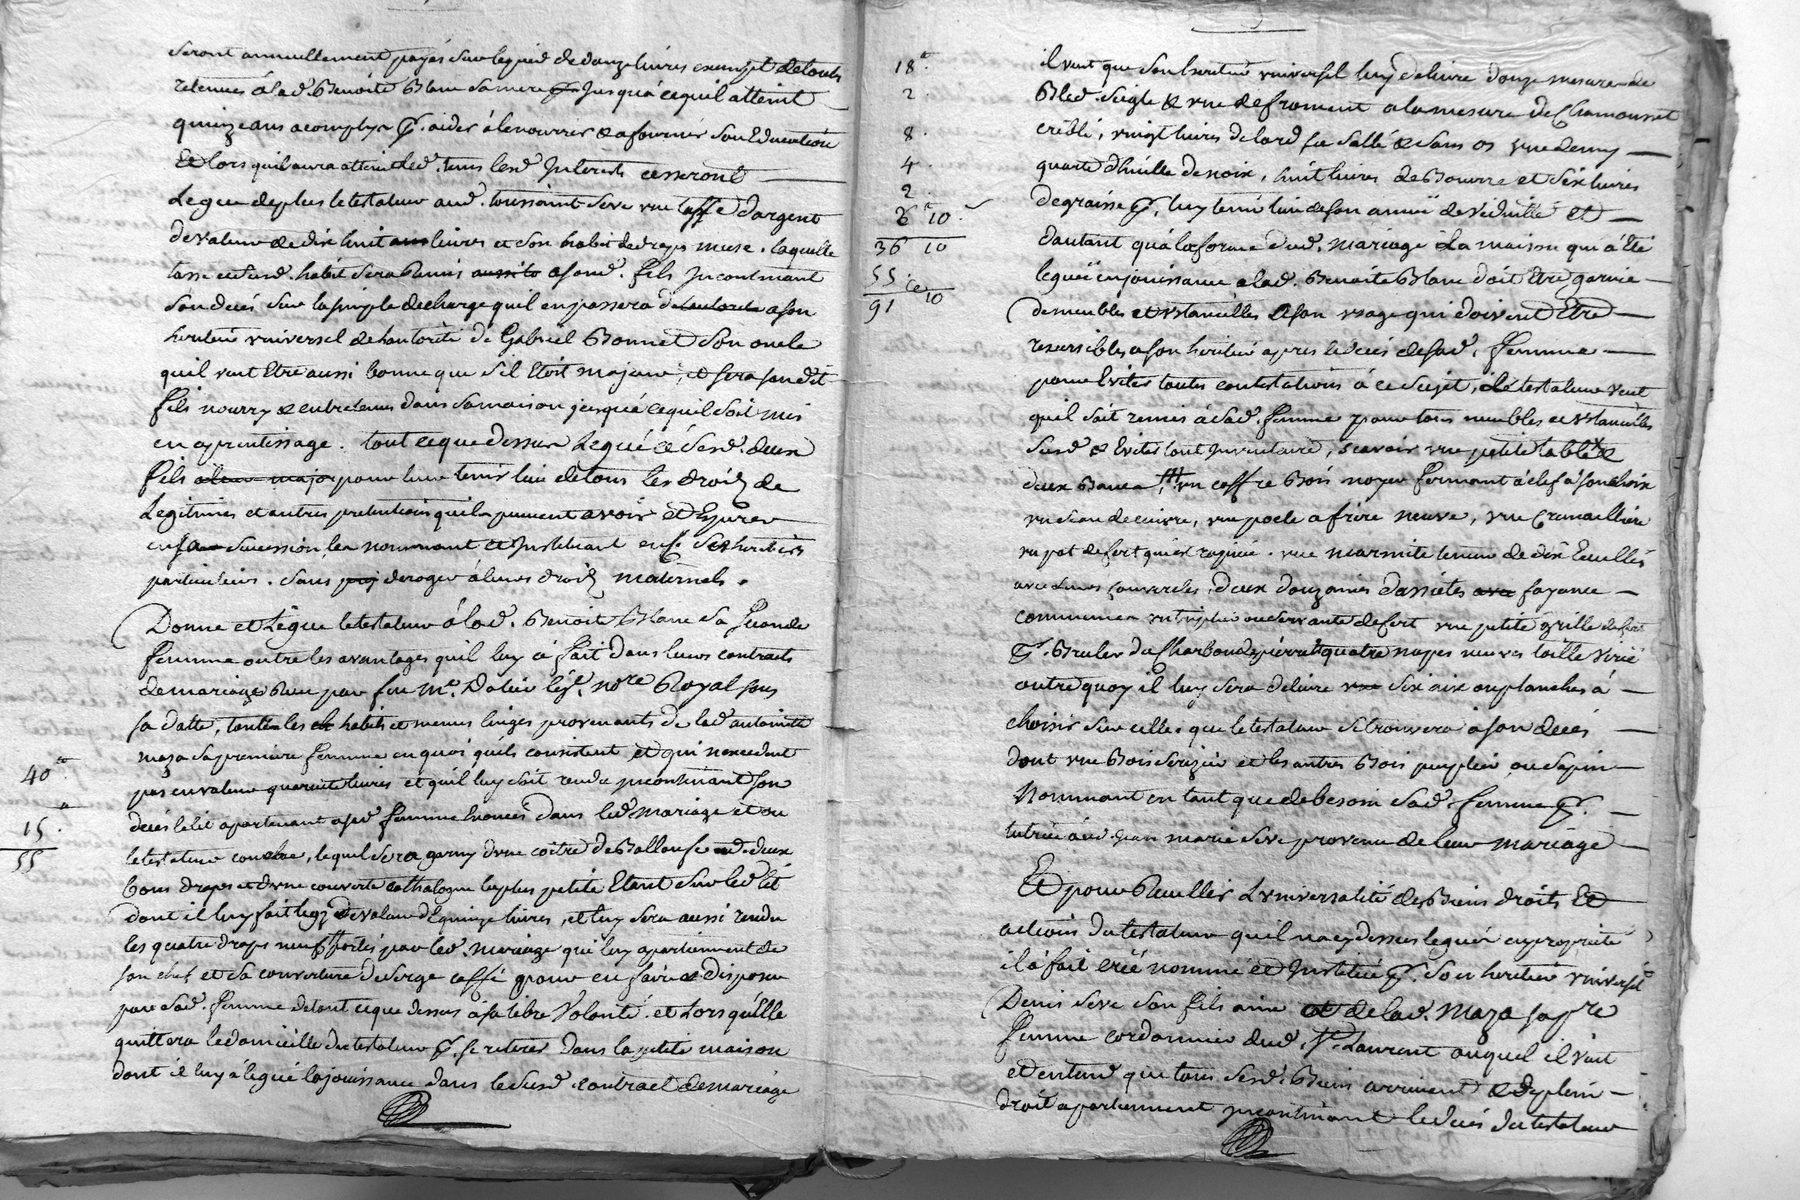 seront annuellement payés sur le pied de douze livres exempt de toute
retenues à lad. Benoite Blanc sa mere jusqua cequil atteint
quinze ans acomplys pr. aider à le nourrir & a fournir son Education
Et lors quil aura atteint led. tems lesd. Interests cesseront
Legue deplus le testateur aud. toussaint Seve une tasse d'argent
de valeur de dix huit livres et son habit de draps muse. laquelle
tasse et susd. habit sera Remis a sond. fils incontinant
son decés sur la simple decharge quil en passera a son
heritier universel de l'autorité de Gabriel Bonnet son oncle
quil veut Etre aussi bonne que s'il Etoit majeur, et sera sondit
fils nourry & entretenus dans sa maison jusqu'à cequil soit mis
en aprentissage. tout ceque dessus Legué à sesd. deux
fils pour leur tenir lieu de tous les droits de
Legitimes et autres pretentions quils peuvent avoir et Esperer
en sa sucession, les nommant et Instituant ses heritiers
particuliers. sans deroger à leurs droits maternels.
Donne et Legue le testateur à lad. Benoit Blanc sa seconde
femme outre les avantages quil luy a fait dans leurs contracts
de mariage Reçu par feu Me. nore Royal sous
sa datte, toutes les habits et menus linges provenants de lad antoinette
maza sa premiere femme en quoi quils consistent et qui n'excedent
pas en valeur quarante livres et quil luy soit rendu incontinant son
40tt
decés le lit apartenant a sad femme Enoncé dans led mariage et ou
15.
le testateur couche, lequel sera garny d'une coitre de Ballouse deux
55
bons draps et d'une couverte cathalogne la plus petite Etant sur led lit
dont il luy fait legs de valeur de quinze livres, et luy sera aussi rendu
les quatre draps neufs portés par led. mariage qui luy apartiennent de
son chef et sa couverture de serge caffé pour en faire & disposer
par sad. femme de tout ceque dessus à sa libre Volonté. et Lors qu'elle
quittera le domicille du testateur pr. se retirer dans la petite maison
dont il luy a legué la jouissance dans le susd. contract de mariage
18tt
2.
8.
4.
2.
6tt 10
36 10
55 .
91 10
il veut que son heritier universel luy delivre douze mesures de
Bled seigle & une de froment a la mesure de Chamousset
criblé, vingt livres de lard sallé & sans os une demy
quarte d'huille de noix, huit livres de Beurre et six livres
de graisse pr. luy tenir lieu de son année de viduité et
dautant qu'à la forme dud. mariage La maison qui a été
leguée en jouissance a lad. Benoite Blanc doit être garnie
de meubles et ustancilles a son usage qui doivent Etre
reversibles a son heritier apres le decés de sad. femme
pour Eviter toutes contestations à ce sujet, Le testateur veut
quil soit remis à sad. femme pour tous meubles et ustancilles
susd & Eviter tout Inventaire, sçavoir une petite table &
deux Bancs, un coffre Bois noyer fermant à clef à son choix
un seau de cuivre, une poele a frire neuve, une Cremaillere
un pot de fert une marmite tenant de dix Ecuelles
avec leurs couvercles, deux douzaines d'assietes fayance
communes un trepier ou servante de fert une petite grille de fert
pr. Bruler du Charbon de pierre quatre napes neuves toille
outre quoy il luy sera delivré six aix ou planches à
choisir sur celles que le testateur se trouvera à son decés
dont une Bois serizier et les autres Bois peuplier ou sapin
Nommant en tant que de besoin sad. femme pr.
tutrice aud. Jean marie Seve provenu de leur mariage
Et pour Recueillir L'universalité des Biens droits Et
actions du testateur quil n'a cydessus legués en propriété
il à fait créé nommé et Institué pr. son heritier universel
Denis Seve son fils ainé de lad. Maza sa pre
femme cordonnier dud. St. Laurent auquel il veut
et entend que tous sesd. Biens arrivent & deplein
droit apartiennent incontinant le decés du testateur